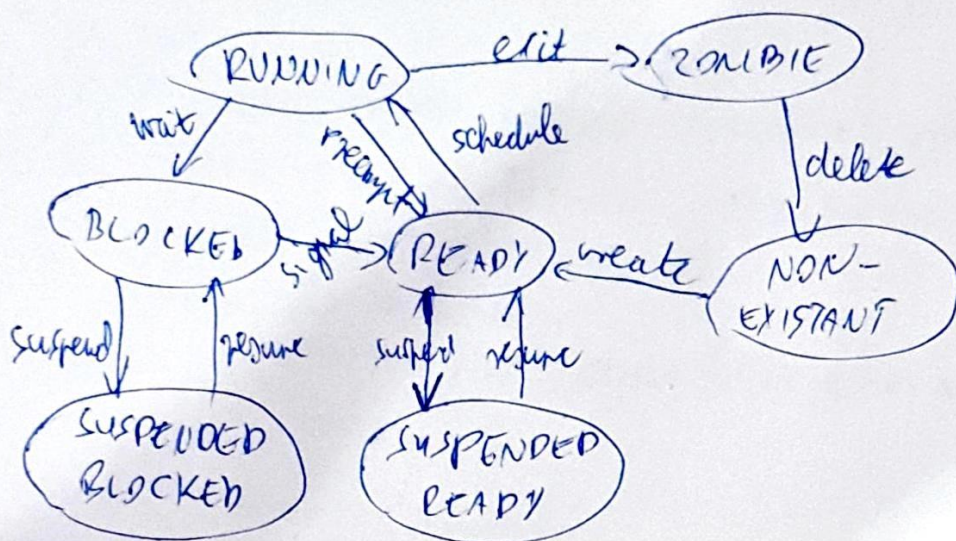 RUNNING
exit
ZOMBIE
wait
preempt
schedule
delete
BLOCKED
signal
READY
create
NON-
EXISTANT
suspend
resume
suspend
resume
SUSPENDED
BLOCKED
SUSPENDED
READY